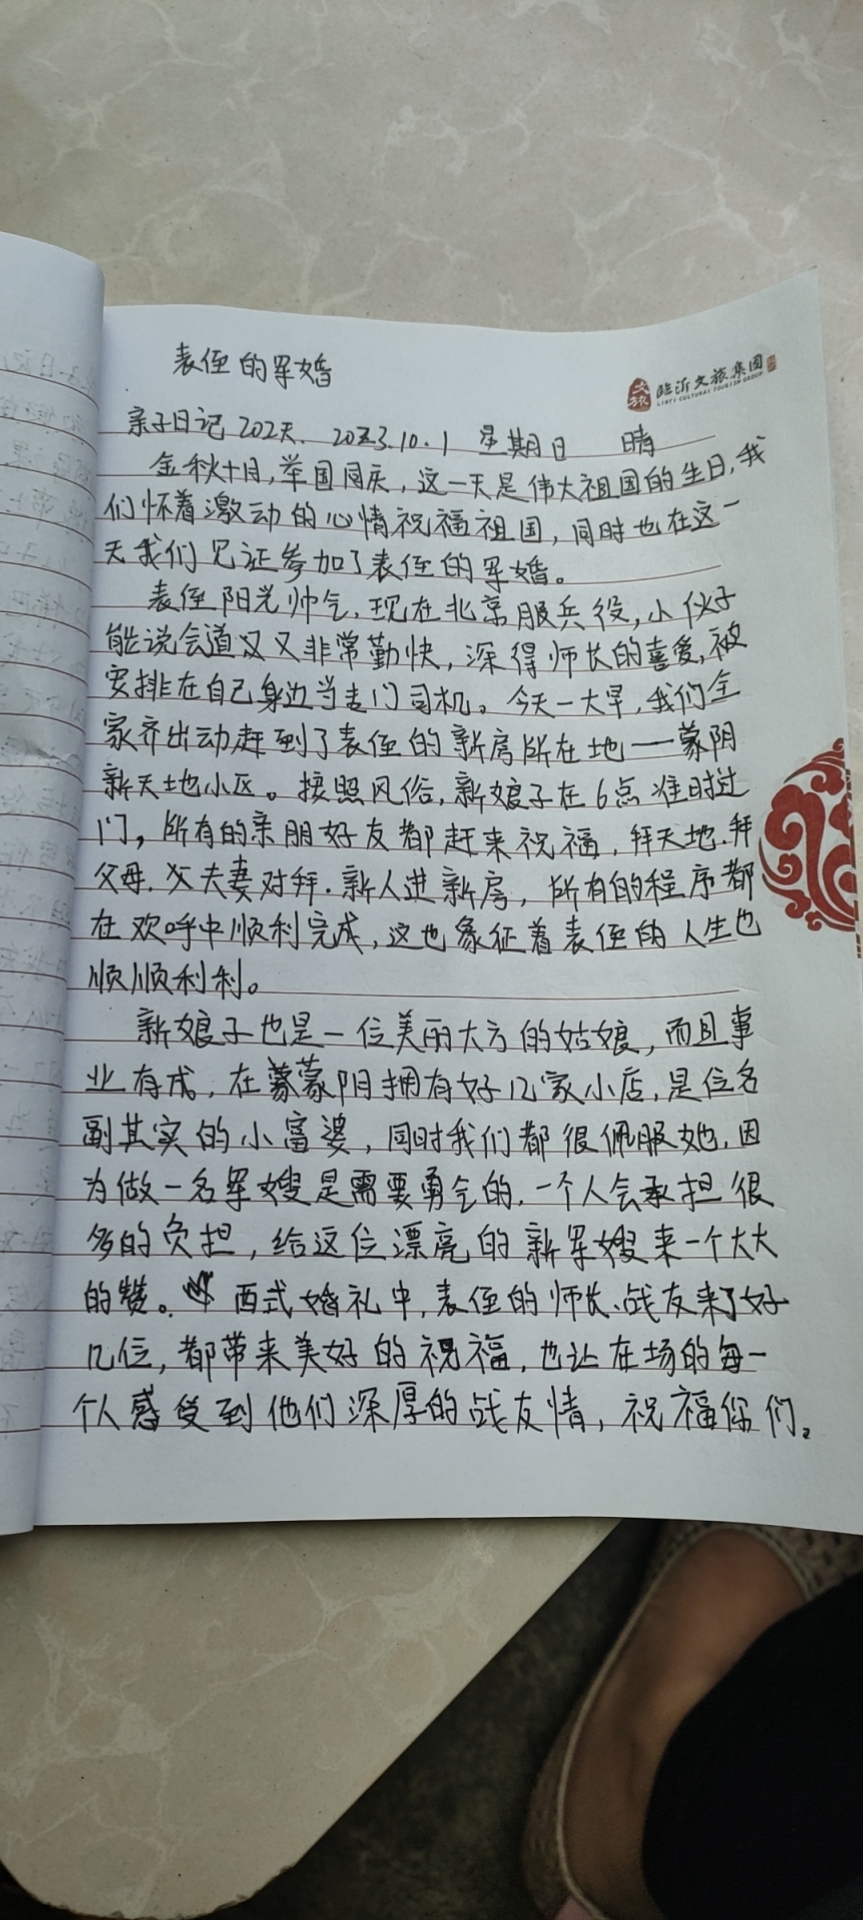 表侄的军婚
文旅 临沂文旅集团
LINYI CULTURAL TOURISM GROUP
亲子日记 202天. 2023.10.1 星期日 晴
金秋十月,举国同庆,这一天是伟大祖国的生日,我
们怀着激动的心情祝福祖国,同时也在这一
天我们见证参加了表侄的军婚。
表侄阳光帅气,现在北京服兵役,小伙子
能说会道又又非常勤快,深得师长的喜爱,被
安排在自己身边当专门司机。今天一大早,我们全
家齐出动赶到了表侄的新房所在地——蒙阴
新天地小区。按照风俗,新娘子在6点准时过
门,所有的亲朋好友都赶来祝福,拜天地.拜
父母.夫妻对拜.新人进新房,所有的程序都
在欢呼中顺利完成,这也象征着表侄的人生也
顺顺利利。
新娘子也是一位美丽大方的姑娘,而且事
业有成,在蒙阴拥有好几家小店,是位名
副其实的小富婆,同时我们都很佩服她,因
为做一名军嫂是需要勇气的,一个人会承担很
多的负担,给这位漂亮的新军嫂来一个大大
的赞。西式婚礼中,表侄的师长、战友来了好
几位,都带来美好的祝福,也让在场的每一
个人感受到他们深厚的战友情,祝福你们。